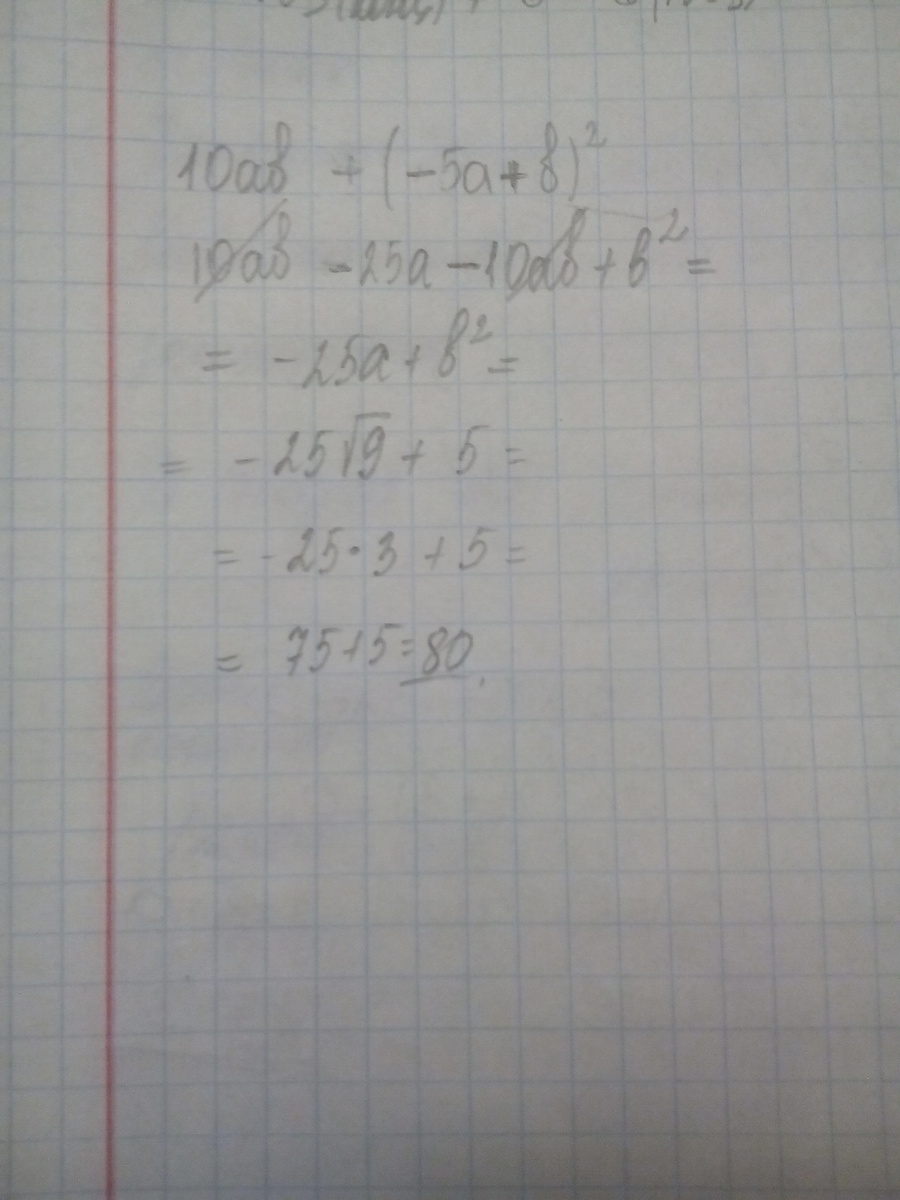 10ab + (-5a+b)²
10ab - 25a - 10ab + b² =
= -25a + b² =
= -25√9 + 5 =
= -25·3 + 5 =
= 75+5=80.